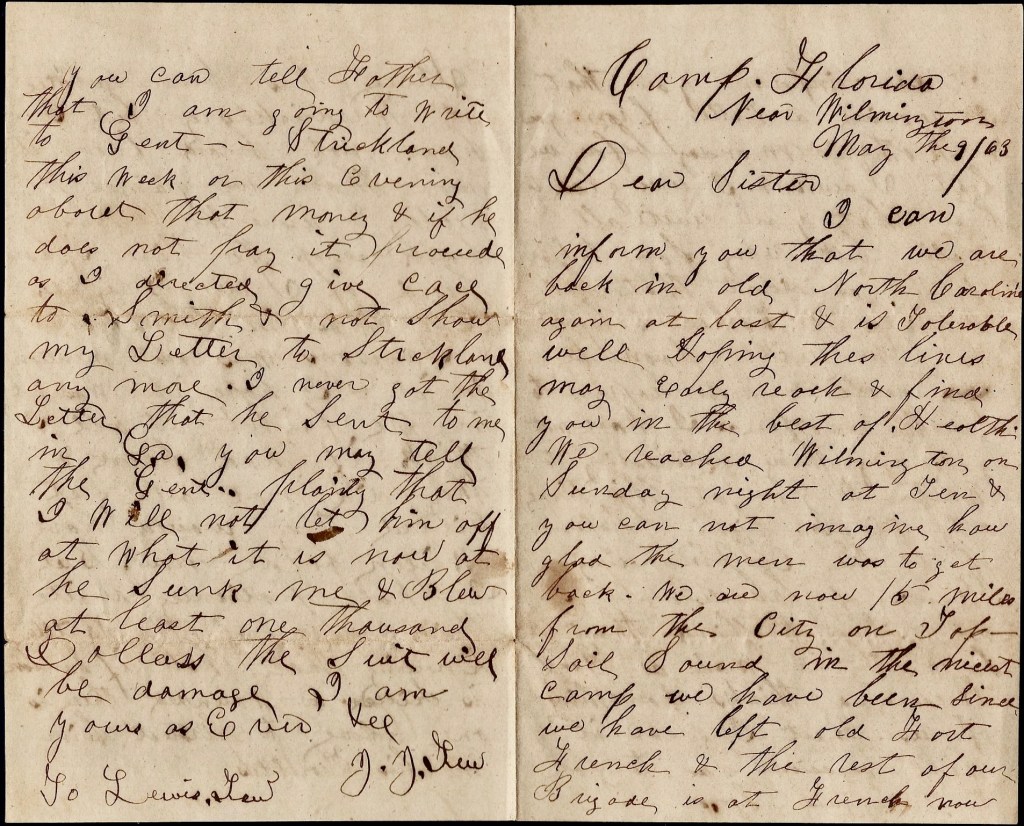 Camp. Florida
Near Wilmington
May the 9/63
Dear Sister
I can
inform you that we are
back in old North Carolina
again at last & is Tolerable
well Hoping thes lines
may Early reach & find
you in the best of Health
We reached Wilmington on
Sunday night at Ten &
you can not imagine how
glad the men was to get
back. We are now 15 miles
from the City on Top-
Sail Sound in the nicest
camp we have been since
we have left old Fort
French & the rest of our
Brigade is at French now
you can tell Father
that I am going to write
to Gent -- Strickland
this week or this Evening
about that money & if he
does not pay it procede
as I derected give cace
to Smith & not Show
my Letter to Strickland
any more. I never got the
Letter that he Sent to me
in Ga. you may tell
the Gent. plainly that
I Will not let him off
at what it is now at
he Sunk me & Blew
at least one thousand
Dollars the Suit will
be damage I am
yours as Ever &c
J. J.
To Lewis